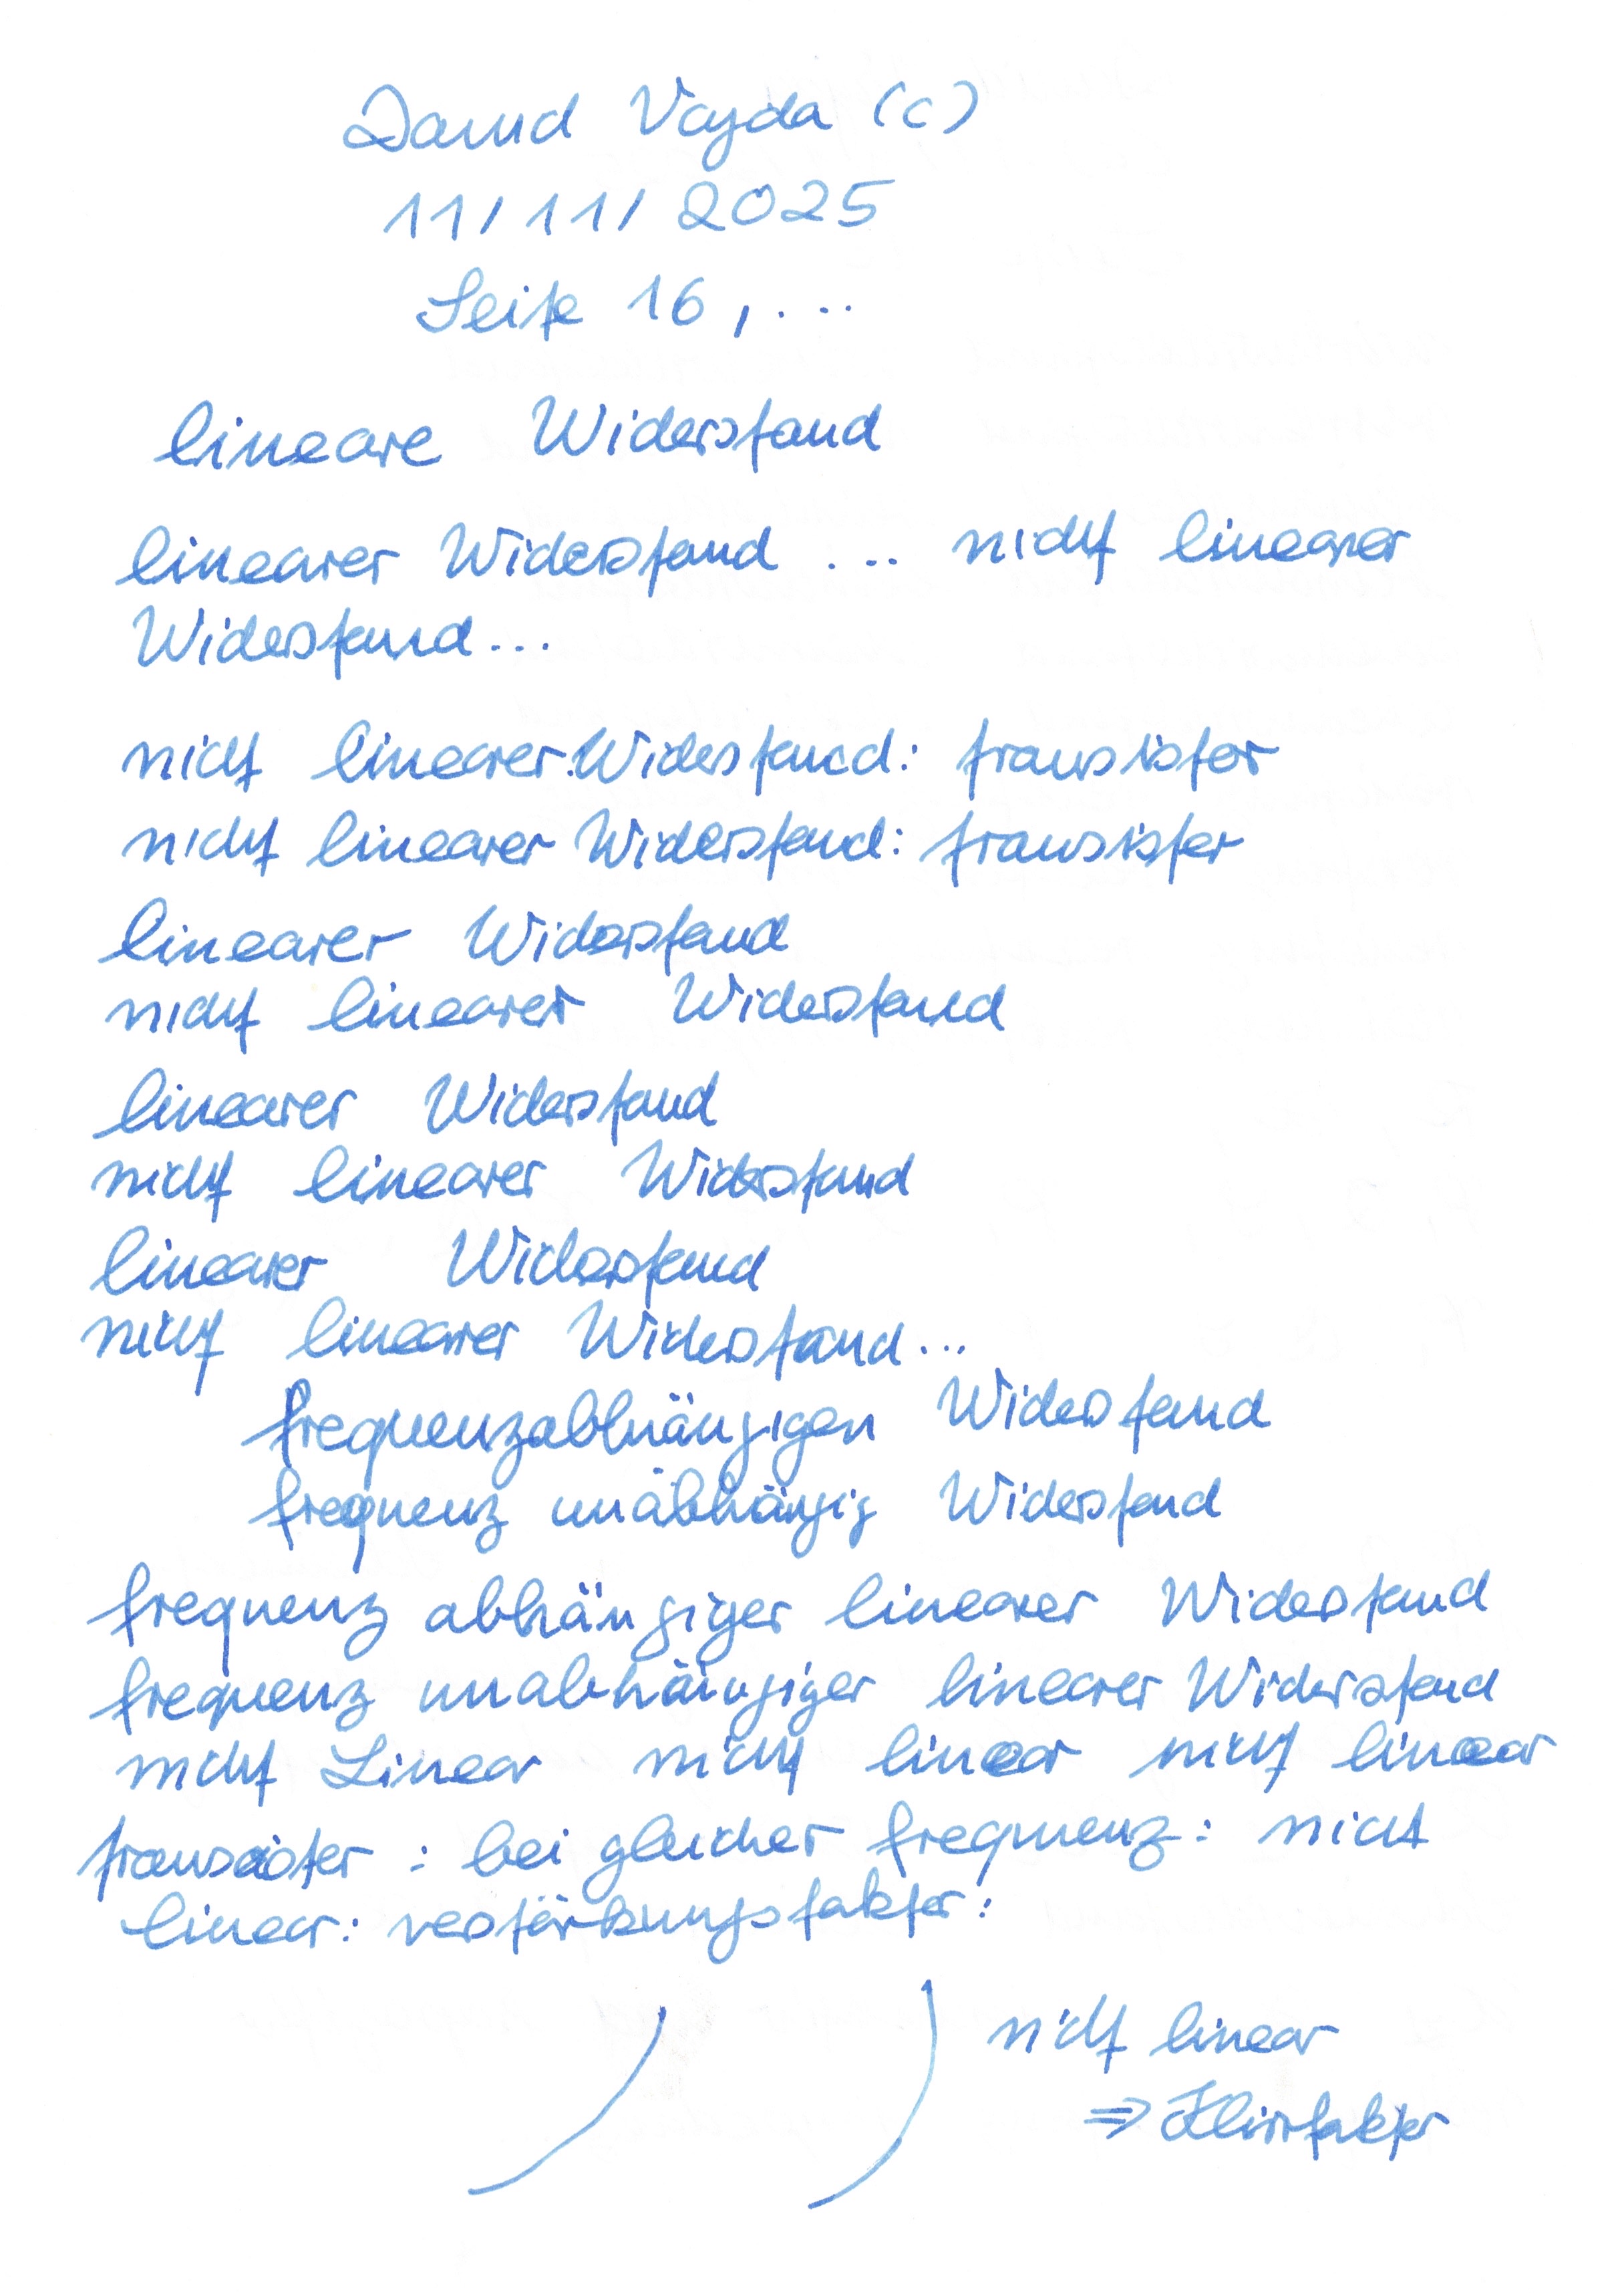 David Vajda (c)
11/11/2025
Seite 16, ...
lineare Widerstand
linearer Widerstand ... nicht linearer
Widerstand...
nicht linearer Widerstand: transistor
nicht linearer Widerstand: transistor
linearer Widerstand
nicht linearer Widerstand
linearer Widerstand
nicht linearer Widerstand
linearer Widerstand
nicht linearer Widerstand...
frequenzabhängigen Widerstand
frequenz unabhängig Widerstand
frequenz abhängiger linearer Widerstand
frequenz unabhängiger linearer Widerstand
nicht Linear nicht linear nicht linear
transistor : bei gleicher frequenz: nicht
linear: verstärkungsfaktor:
nicht linear
⇒ Klirrfaktor